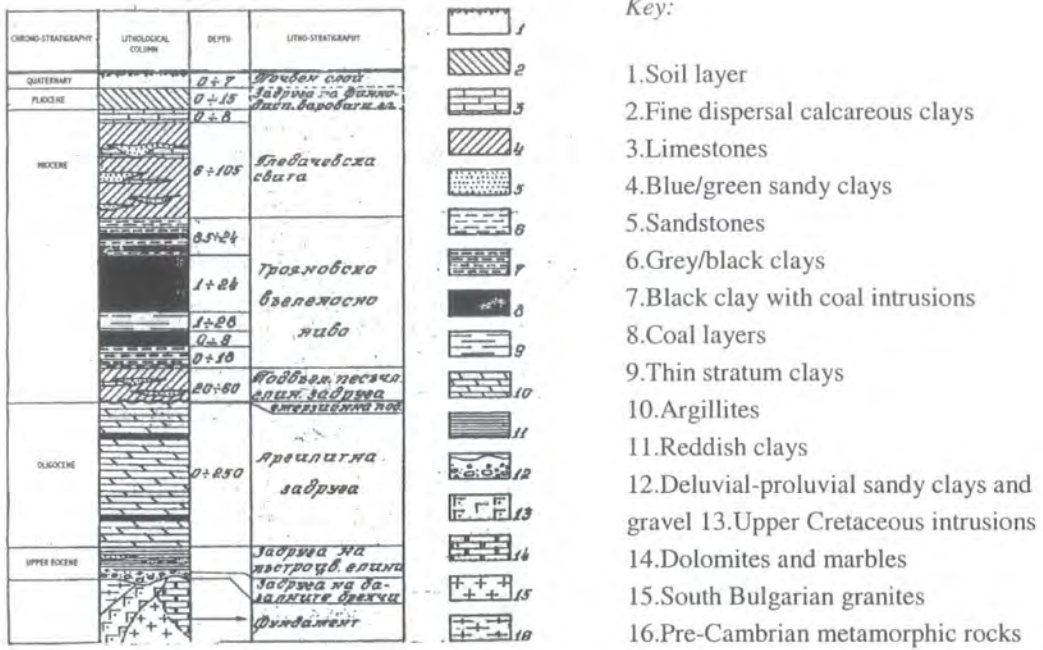 CHRONO-STRATIGRAPHY
LITHOLOGICAL COLUMN
DEPTH
LITHO-STRATIGRAPHY
QUATERNARY
0÷7
Почвен слой
PLIOCENE
0÷15
Задруга на финно-
дисп. варовити гл.
0÷8
MIOCENE
6÷105
Гледачевска
свита
8.5÷24
1÷24
Трояновско
въгленосно
ниво
1÷28
0÷9
0÷18
20÷60
Подвъгл. песъчл.
глин. задруга
OLIGOCENE
0÷250
Аргилитна
задруга
UPPER EOCENE
Задруга на
пъстроцв. глини
Задруга на ба-
залните брекчи
Фундамент
1
2
3
4
5
6
7
8
9
10
11
12
13
14
15
16
Key:
1.Soil layer
2.Fine dispersal calcareous clays
3.Limestones
4.Blue/green sandy clays
5.Sandstones
6.Grey/black clays
7.Black clay with coal intrusions
8.Coal layers
9.Thin stratum clays
10.Argillites
11.Reddish clays
12.Deluvial-proluvial sandy clays and
gravel 13.Upper Cretaceous intrusions
14.Dolomites and marbles
15.South Bulgarian granites
16.Pre-Cambrian metamorphic rocks